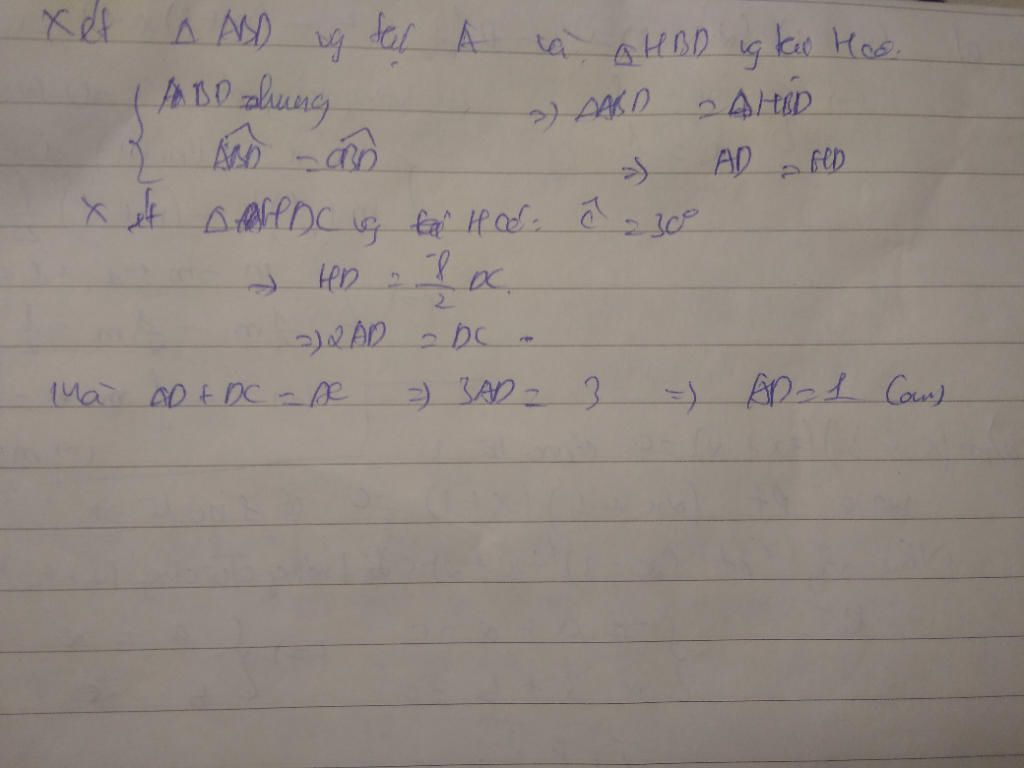 Xét Δ ABD vg tại A và Δ HBD vg tại H có:
BD chung => ΔABD = ΔHBD
ABD = CBD => AD = HD
Xét ΔHDC vg tại H có: Ĉ = 30°
=> HD = 1/2 DC.
=> 2AD = DC
Mà AD + DC = AC => 3AD = 3 => AD = 1 (cm)